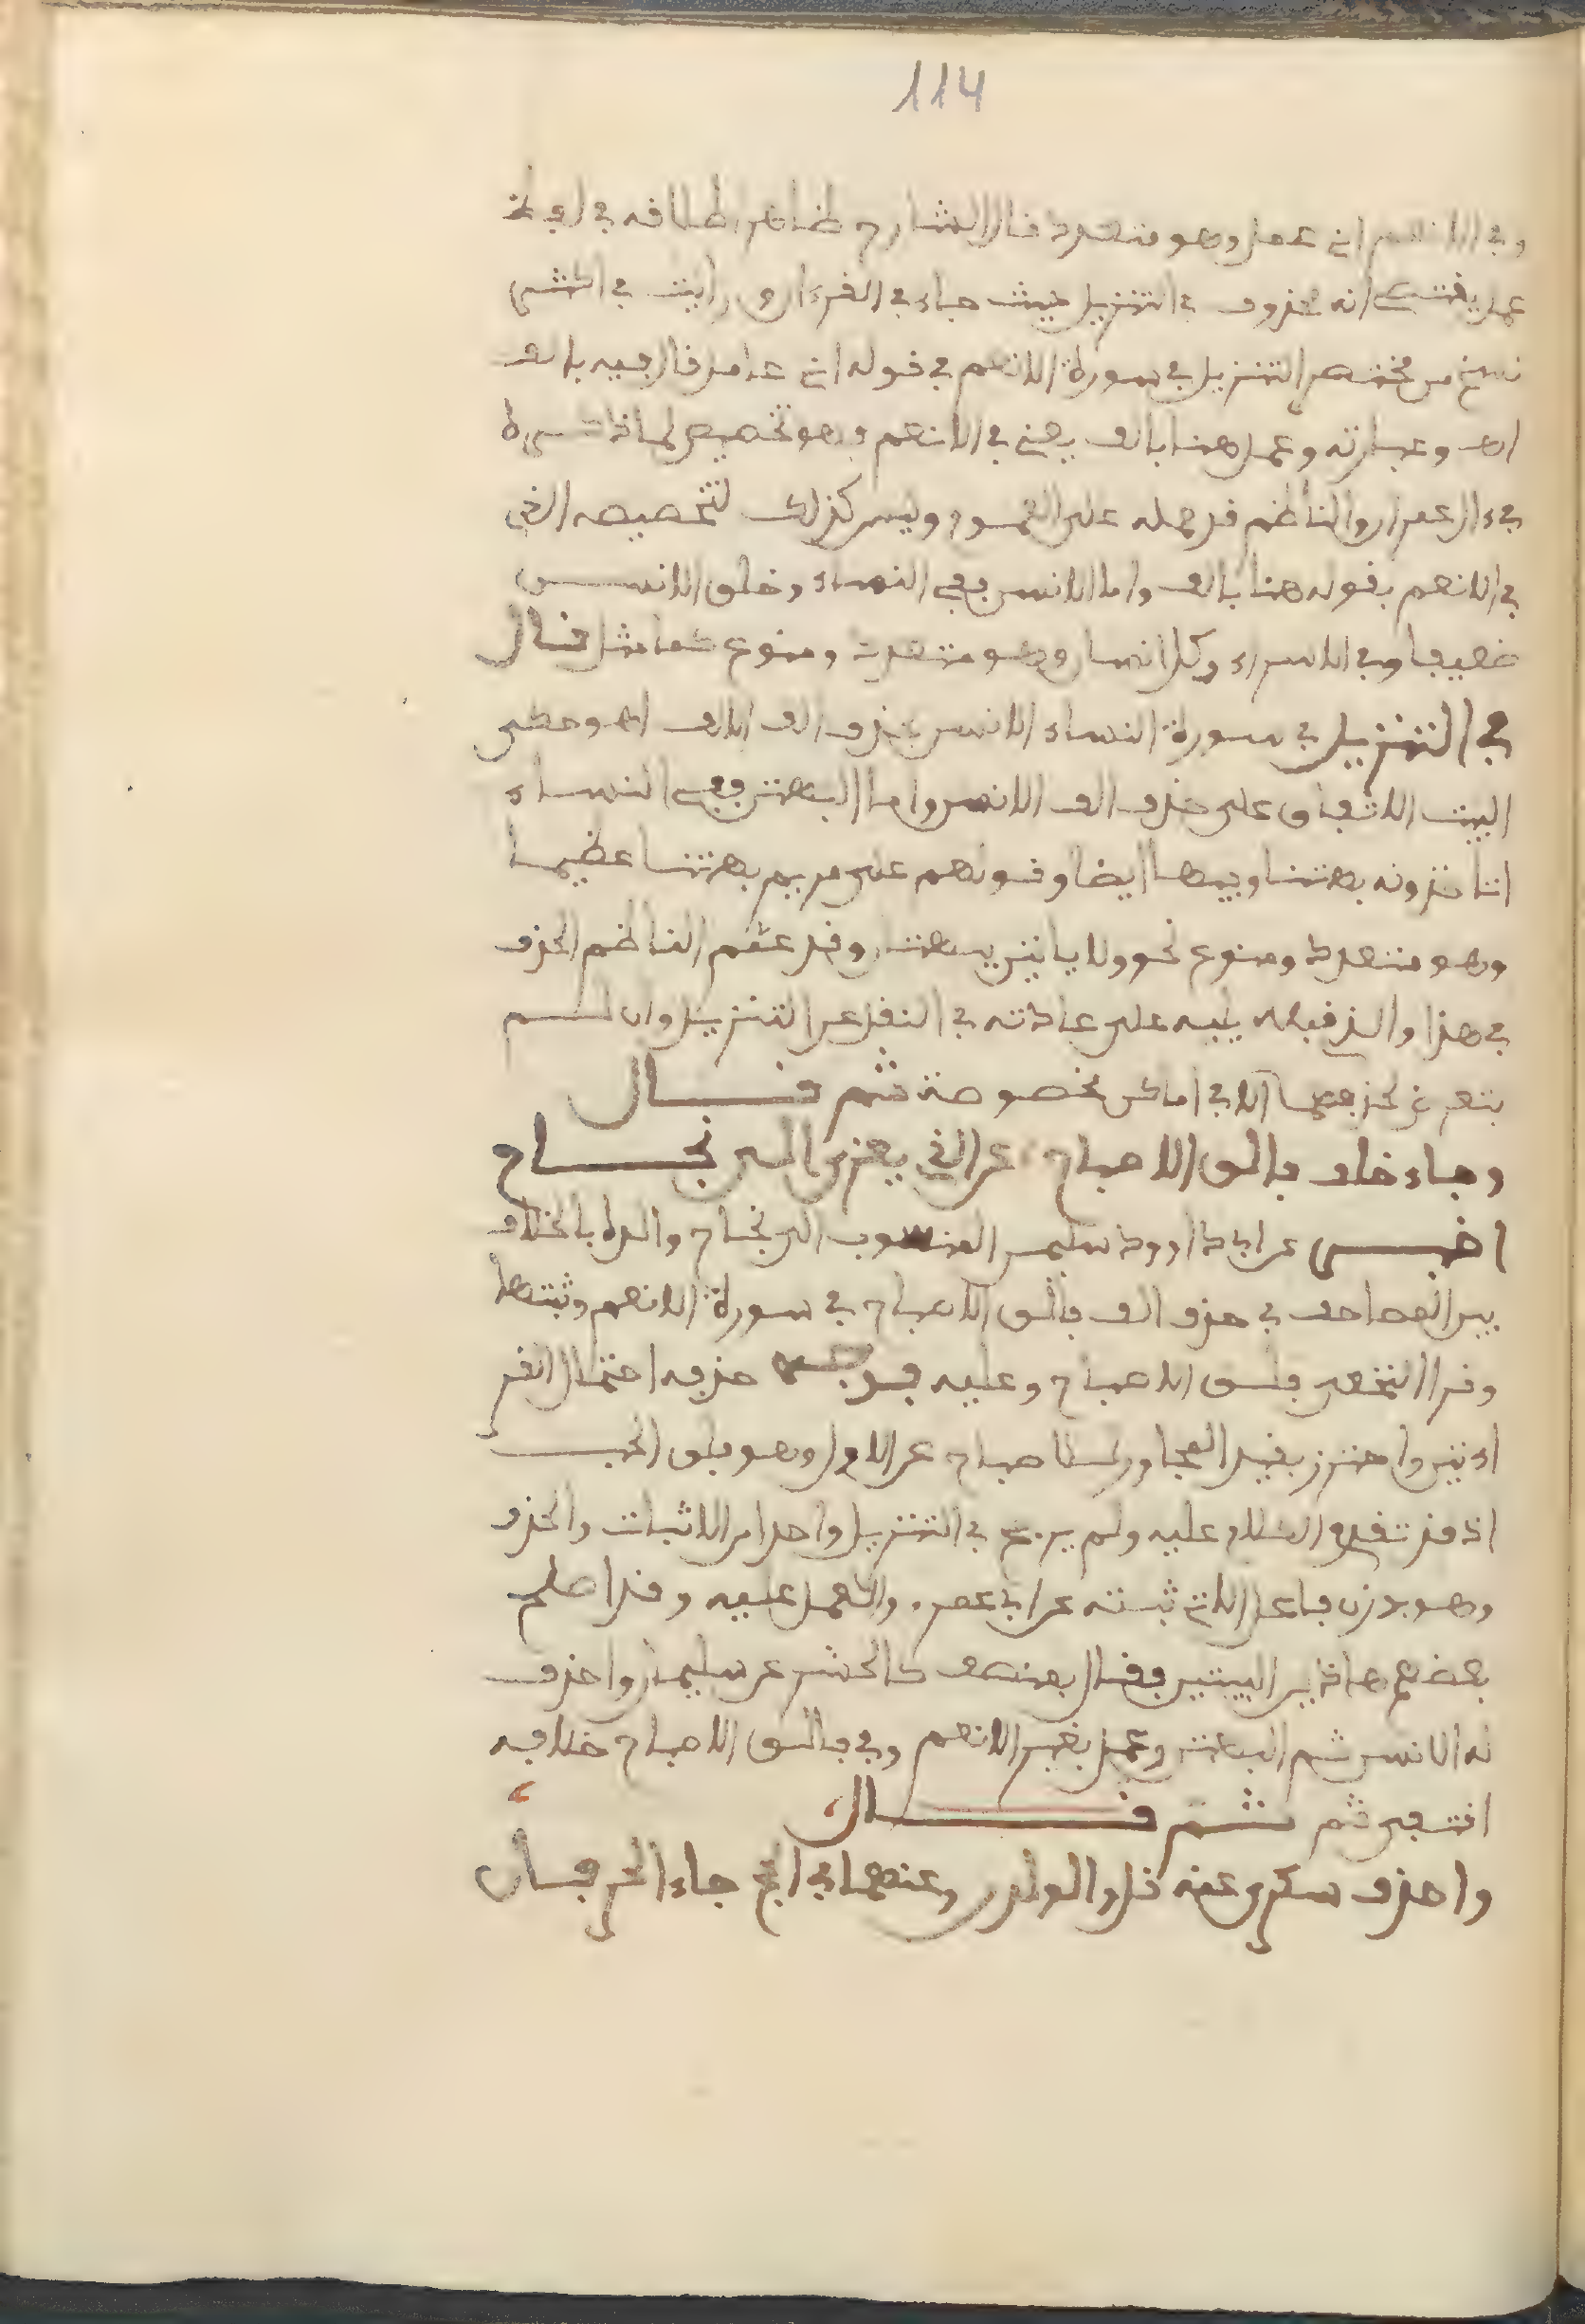 114
وفي الانعم اني عمل وهو متعدد قال الشارح ظاهر اطلاقه في لفظ
عمل يقتضي انه محذوف في التنزيل حيث جاء في القرءان ورايت في اكثر
نسخ من مختصر التنزيل في سورة الانعم في قوله اني عامل قال فيه بالف
اهـ وعبارته وعمل هنا بالف يعني في الانعم وهو تخصيص لما ذكره
في ءال عمران والناظم قد حمله على العموم وليس كذلك لتخصيصه الذي
في الانعم بقوله هنا بالف واما الانسن ففي النساء وخلق الانسن
ضعيفا وفي الاسراء وكل انسان وهو متعدد ومنوع كما مثل قال
في التنزيل في سورة النساء الانسن بحذف الف الالف اهـ وحكى
اللبيب الاتفاق على حذف الف الانسن واما البهتن ففي النساء
اتاخذونه بهتنا وفيها ايضا وقولهم على مريم بهتنا عظيما
وهو متعدد ومنوع نحو ولا ياتين ببهتن وقد عمم الناظم الحذف
في هذا والذي قبله يليه على عادته في النقل عن التنزيل وان لم
يتعرض لحذفهما الا في اماكن مخصوصة ثم قال
وجاء خلف فالق الاصباح عن الذي يعزى الى نجاح
اخبر عن ابي داوود سليمن المنسوب الى نجاح والده بالخلاف
بين المصاحف في حذف الف فالق الاصباح في سورة الانعم وثبتها
وقرا النخعي فلق الاصباح وعليه حذفه احتمال القر
اءتين واحترز بقيد المجاور للاصباح عن الاول وهو فلق الحب
اذ قد تقدم الكلام عليه ولم يرجح في التنزيل واحدا من الاثبات والحذف
وهو بوزن فاعل الاتي ثبته عن ابي عمر والعمل عليه وقد اصلح
بعضهم هاذين البيتين فقال بمنصف كالحشر عن سليمان واحذف
له الانسن ثم البهتن وعمل بغير الانعم وفي فالق الاصباح خلافه
اقتفي ثم ثم قال
واحذف سكرى عنه قل والولدن وعنهما في الحج جاء الحرفان